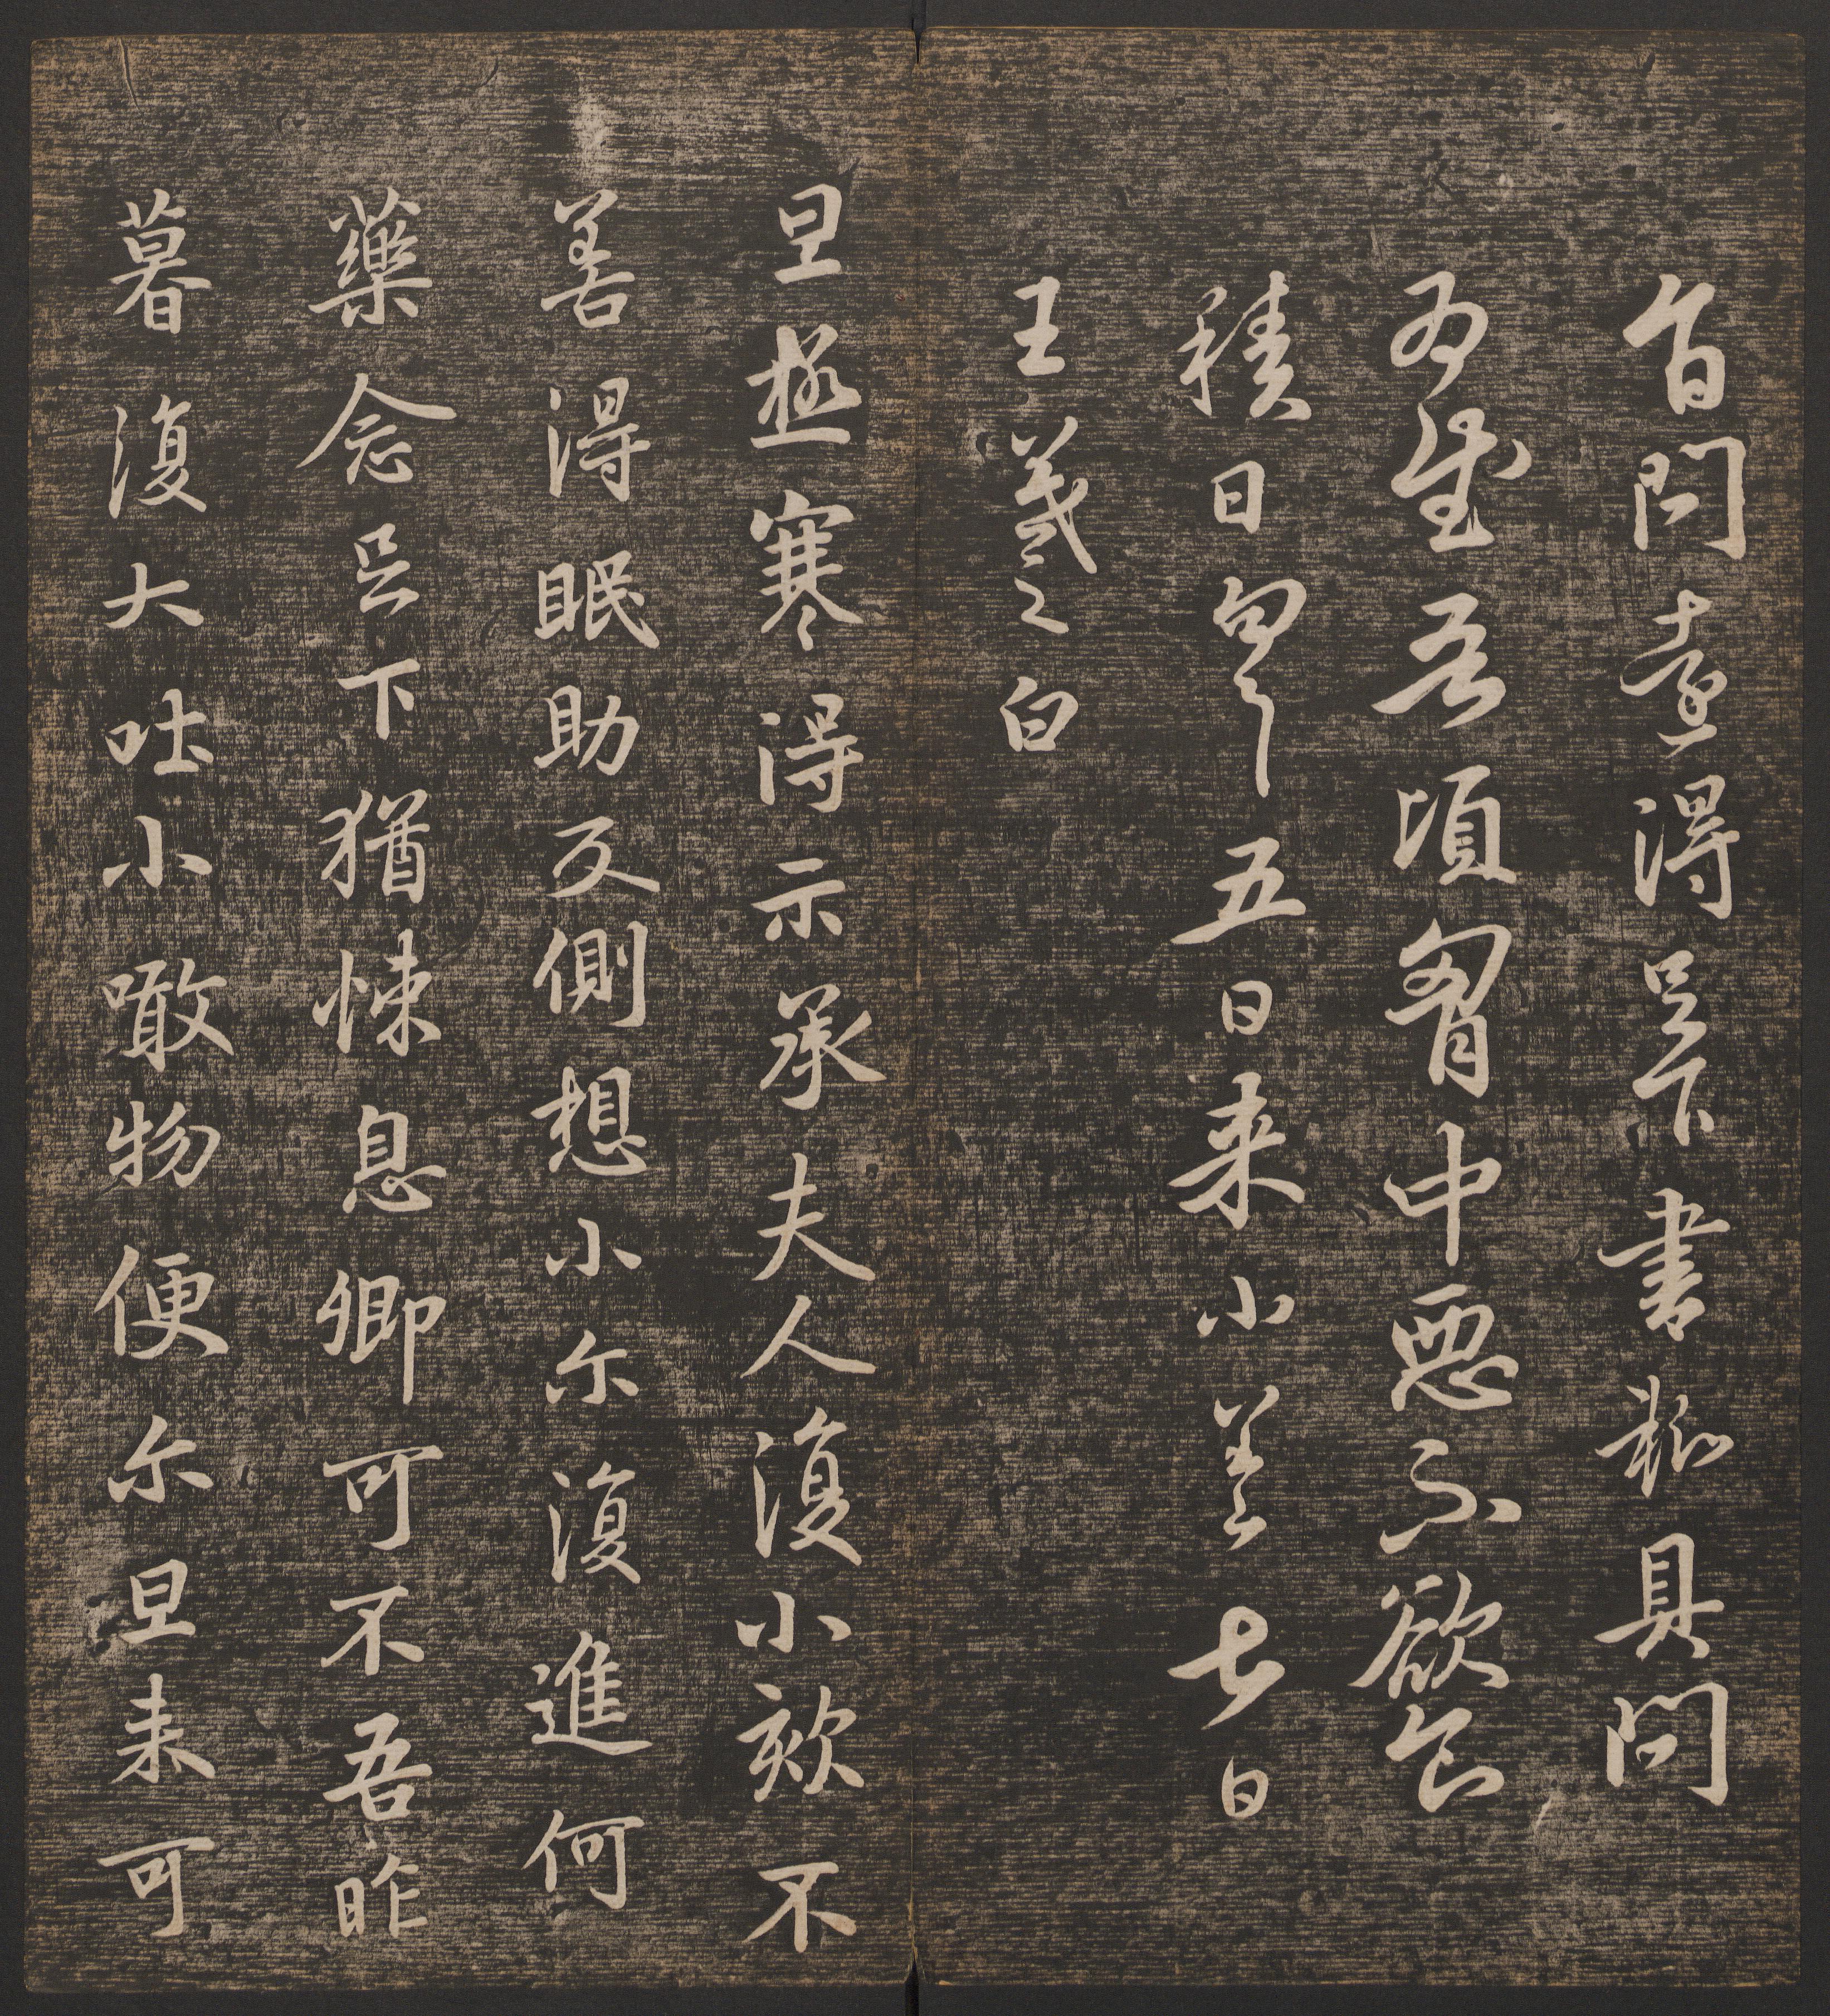 問得足下書粗具問
為慰吾頃胷中惡不欲食
積日五日来小差七日
王羲之白
旦極寒得示承夫人復小欬不
善得眠助反側想小尒復進何
藥念足下猶悚息卿可不吾昨
暮復大吐小噉物便尒旦来可